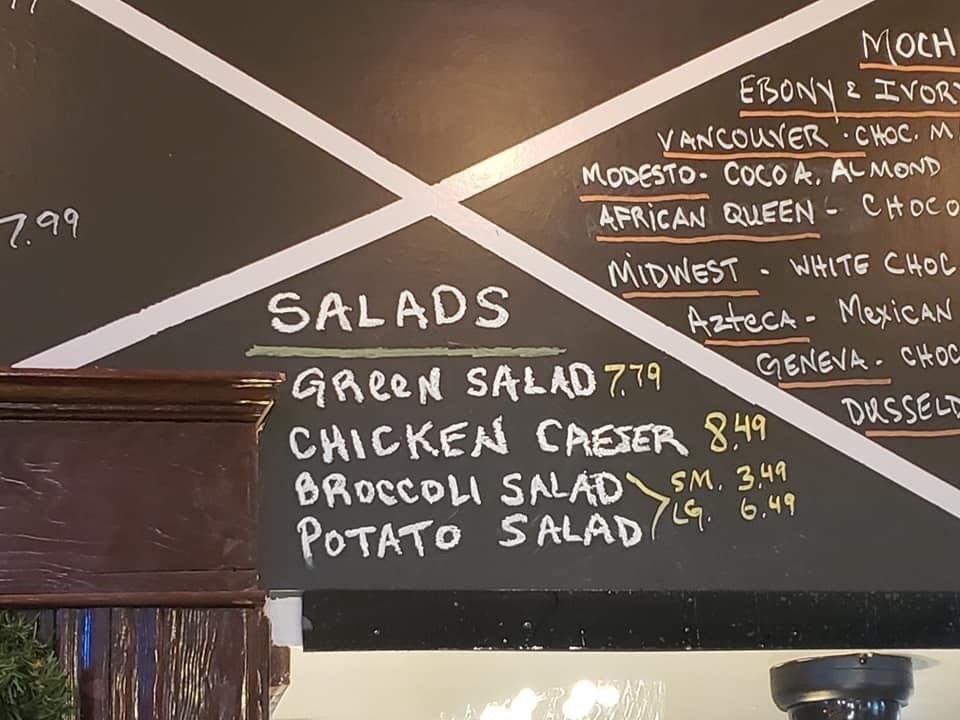 7.99
SALADS
GReeN SALAD 7.79
CHICKEN CAESER 8.49
BROCCOLI SALAD SM. 3.49
POTATO SALAD LG. 6.49
MOCH
EBONY & IVORY
VANCOUVER · CHOC. M
MODESTO - COCOA, ALMOND
AFRICAN QUEEN - CHOCO
MIDWEST - WHITE CHOC
AzTecA - Mexican
GENEVA - CHOC
DUSSELD